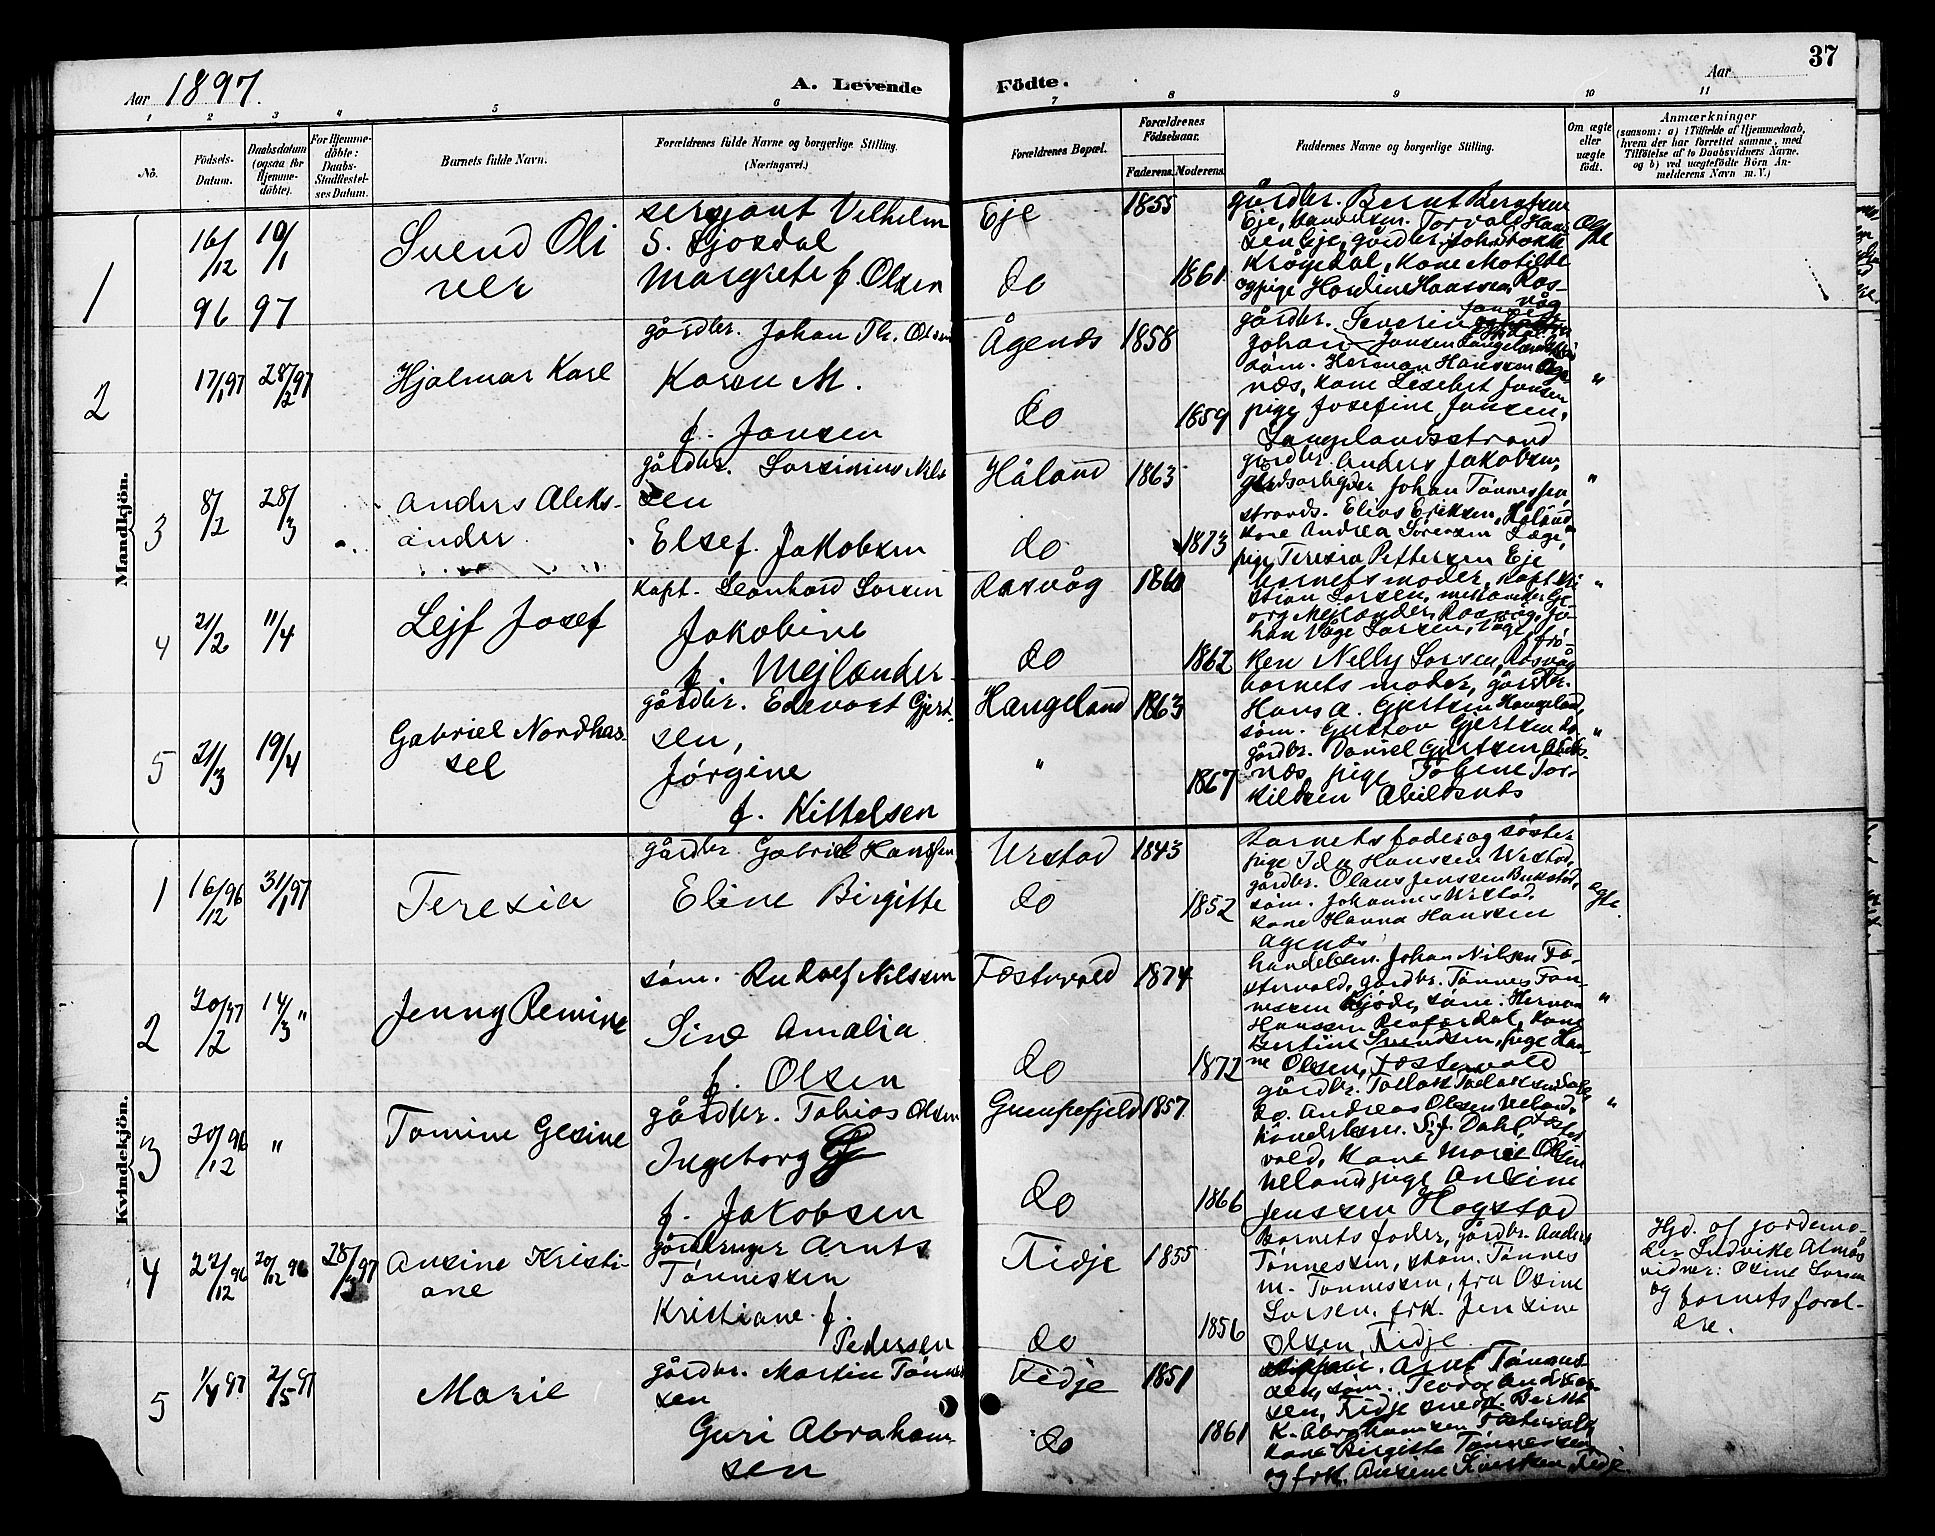 37
Aar 1897.
A. Levende
Födte.
Aar
1 2 3 4 5 6 7 8 9 10 11
No.
Födsels-Datum.
Daabsdatum (ogsaa for Hjemmedöbte).
For Hjemmedöbte: Daabs-Stadfæstelses Datum.
Barnets fulde Navn.
Forældrenes fulde Navne og borgerlige Stilling. (Næringsvei.)
Forældrenes Bopæl.
Forældrenes Födselsaar.
Faderens. Moderens.
Faddernes Navne og borgerlige Stilling.
Om ægte eller uægte födt.
Anmærkninger
(saasom: a) i Tilfælde af Hjemmedaab, hvem der har forrettet samme, med Tilföielse af to Daabsvidners Navne, og b) ved uægtefödte Börn Anmelderens Navn m. V.)
Mandkjön.
1
16/12 96
10/1 97
Svend Oliver
sersjant Vilhelm
S. Sjosdal
Margrete f. Olsen
Eje
do
1855
1861
gårdbr. Bernt Berntsen
Eje, handelsm. Torvald Han
sen Eje, gårdbr.
Krågedal, kone Matilde
og pige Hardine Hanssen, Ros-
våg
Ægte
2
17/1 97
28/2 97
Hjalmar Karl
gårdbr. Johan Th. Olsen
Karen M.
f. Jansen
Ågenes
do
1858
1859
gårdbr. Severin
Johan Jansen
söm. Herman Hanssen Åge
næs, kone Lisebet Jansen
pige Josefine Jansen,
Langelandsstrand
"
3
8/2
28/3
Anders Aleks-
ander
gårdbr. Larsinius Nils
sen
Else f. Jakobsen
Håland
do
1863
1873
gårdbr. Anders Jakobsen,
Johan Tønnessen,
strands. Elias Eriksen, Håland
kone Andrea Sørensen
pige Teresia Pettersen Eje
"
4
21/2
11/4
Lejf Josef
kapt. Leonhard Larsen
Jakobine
f. Mejlænder
Rasvåg
do
1860
1862
barnets moder, kapt. Kri
stian Larsen, Mejlænder Ge-
org Mejlænder Rasvåg, Jo-
han Våge Larsen, Våge, frö-
ken Nelly Larsen, Rasvåg
"
5
21/3
19/4
Gabriel Nordhas-
sel
gårdbr. Edevart Gjert-
sen,
Jørgine
f. Kittelsen
Haugeland
"
1863
1867
barnets moder, gårdbr.
Hans A. Gjertsen Haugeland,
söm. Gustav Gjertsen do
gårdbr. Daniel Gjertsen Abilds-
næs, pige Tobine Tor-
kildsen Abildsnæs
"
Kvindekjön.
1
16/12 96
31/1 97
Teresia
gårdbr. Gabriel Hanssen
Eline Birgitte
Urstad
do
1843
1852
Barnets fader og søster
pige Ida Hanssen Urstad,
gårdbr. Olaus Jenssen Bukstad,
söm. Johannes Urstad,
kone Hanna Hanssen
Agenæs
ægte.
2
20/12 97
14/3 "
Jenny Remine
söm. Rudolf Nilssen
Sine Amalia
f. Olsen
Føstervold
do
1874
1872
handelsm. Johan Nilsen Fø-
stervold, gårdbr. Tønnes Tøn-
nessen Kjøde, söm. Herman
Hanssen Penfordal, kone
Bertine Svendsen, pige Han-
ne Olsen, Føstervold
"
3
20/12 96
"
Tomine Gesine
gårdbr. Tobias Olsen
Ingeborg G
f. Jakobsen
Gumpefjeld
do
1857
1866
gårdbr. Tollak Tollaksen
do. Andreas Olsen Ueland,
handelsm. S. J. Dahl, Føster
vold, kone Marie Olsen
Ueland, pige Ansine
Jenssen Hogstad
"
4
22/12 96
20/12 96
28/3 97
Ansine Kristi-
ane
gårdbruger Arnts
Tønnessen
Kristiane f.
Pedersen
Tidje
do
1855
1856
Barnets fader, gårdbr. Anders
Tønnessen, skom. Tønnes
M. Tønnessen, fru Osine
Larsen, frk. Jensine
Olsen, Tidje
Hjd. af jordemo-
der Ludvikke Almås
vidner: Osine Larsen
og barnets foræl-
dre.
5
1/4 97
2/5 97
Marie
gårdbr. Martin Tønnes
sen
Guri Abraham-
sen
Tidje
do
1851
1861
Arnt Tønnes-
sen, söm. Teodor Andreas-
sen, Tidje snedk. Berthl
K. Abrahamsen Føstervold,
kone Birgitta Tønnessen
og frk. Ansine Tidje.